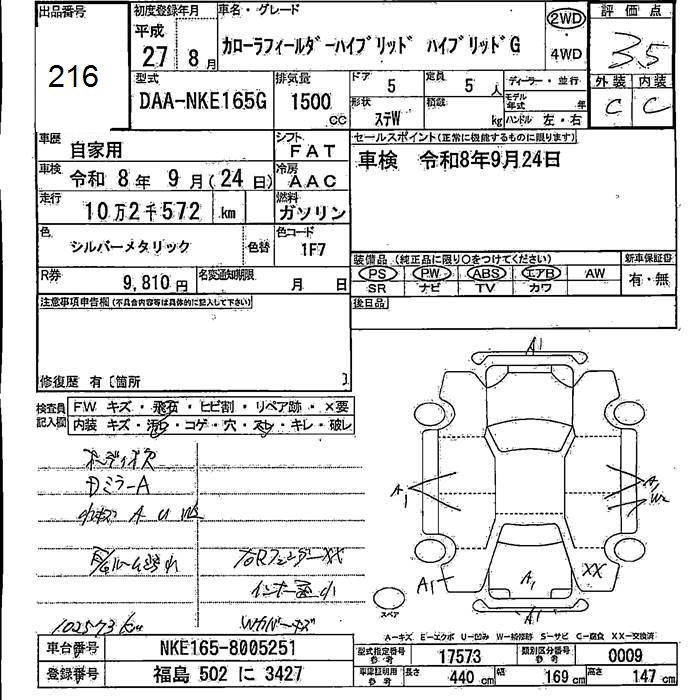 出品番号 初度登録年月 車名・グレード 2WD 評価点
216 平成 27 8月 カローラフィールダーハイブリッド ハイブリッドG 4WD 3.5
型式 排気量 ドア 5 定員 5人 ディーラー・並行 外装 内装
DAA-NKE165G 1500cc 形状 ステW 積載 kg モデル年式 年 ハンドル 左・右 C C
車歴 自家用 シフト FAT セールスポイント(正常に機能するものに限ります)
車検 令和 8年 9月(24日) 冷房 AAC 車検 令和8年9月24日
走行 10万2千572 km 燃料 ガソリン
色 シルバーメタリック 色替 色コード 1F7
装備品 (純正品に限り○をつけてください) 新車保証書
R券 9,810円 名変通知期限 月 日 PS PW ABS エアB AW 有・無
SR ナビ TV カワ
注意事項申告欄(不具合内容等は具体的に記入して下さい) 後日品
修復歴 有〔箇所 〕
検査員記入欄 FW キズ・飛石・ヒビ割・リペア跡・×要
内装 キズ・汚レ・コゲ・穴・スレ・キレ・破レ
A1
ボディオス
DミラーA
A U W2
A1 A1 W2
XX
A1 A1
A1
スペア
102573km
A-キズ E-エクボ U-凹み W-補修跡 S-サビ C-腐食 XX-交換済
車台番号 NKE165-8005251 型式指定番号 参考 17573 類別区分番号 参考 0009
登録番号 福島 502 に 3427 車庫証明用 参考 長さ 440cm 幅 169cm 高さ 147cm